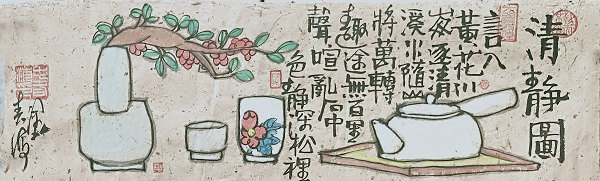 清靜圖
言入
黃花川
每逐清
溪水隨山
將萬轉
趣途無百里
聲喧亂石中
色靜深松裡